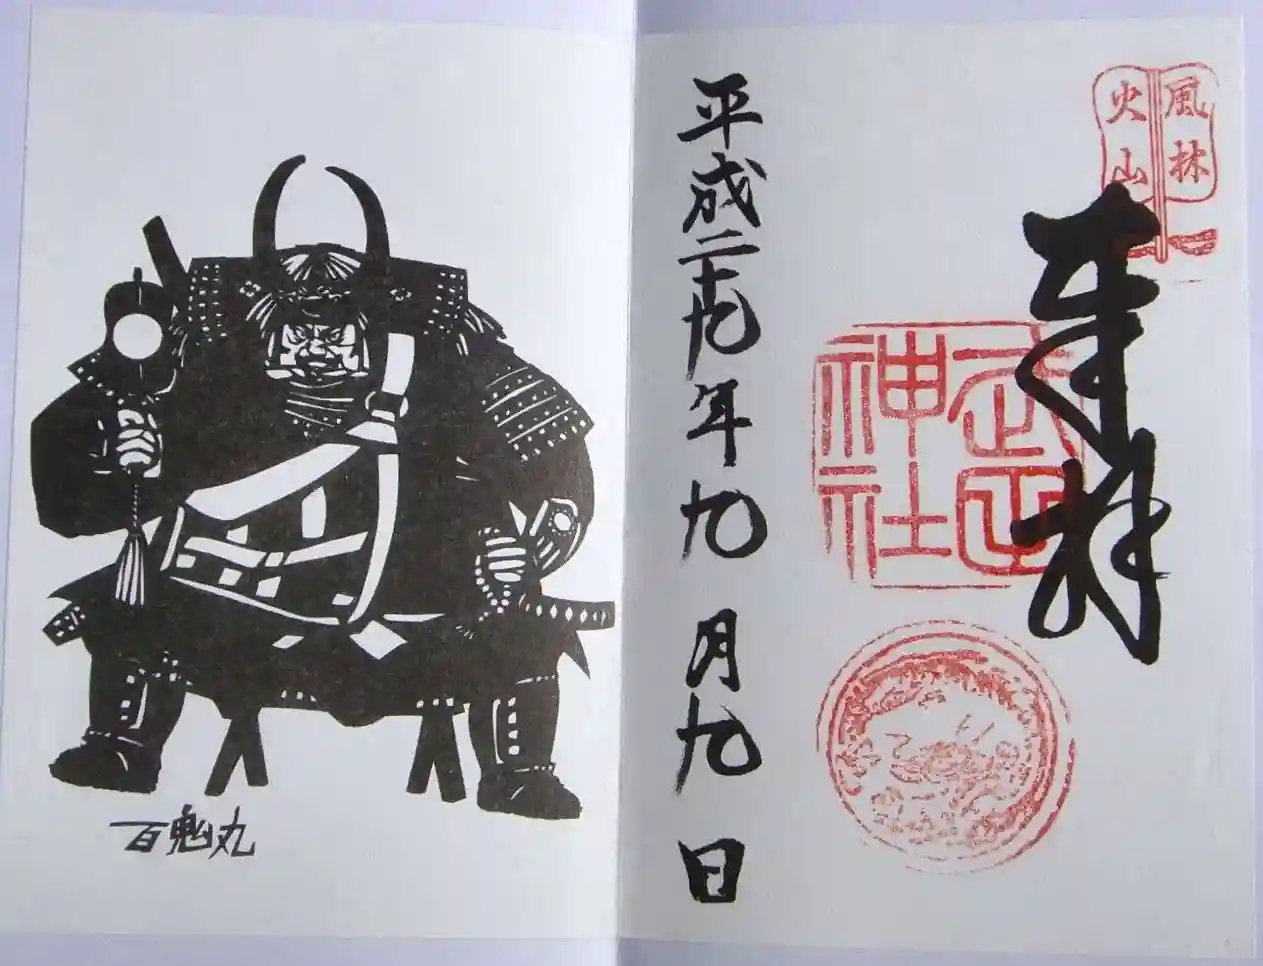 風林
火山
奉拝
武田
神社
平成二十九年九月九日
百鬼丸